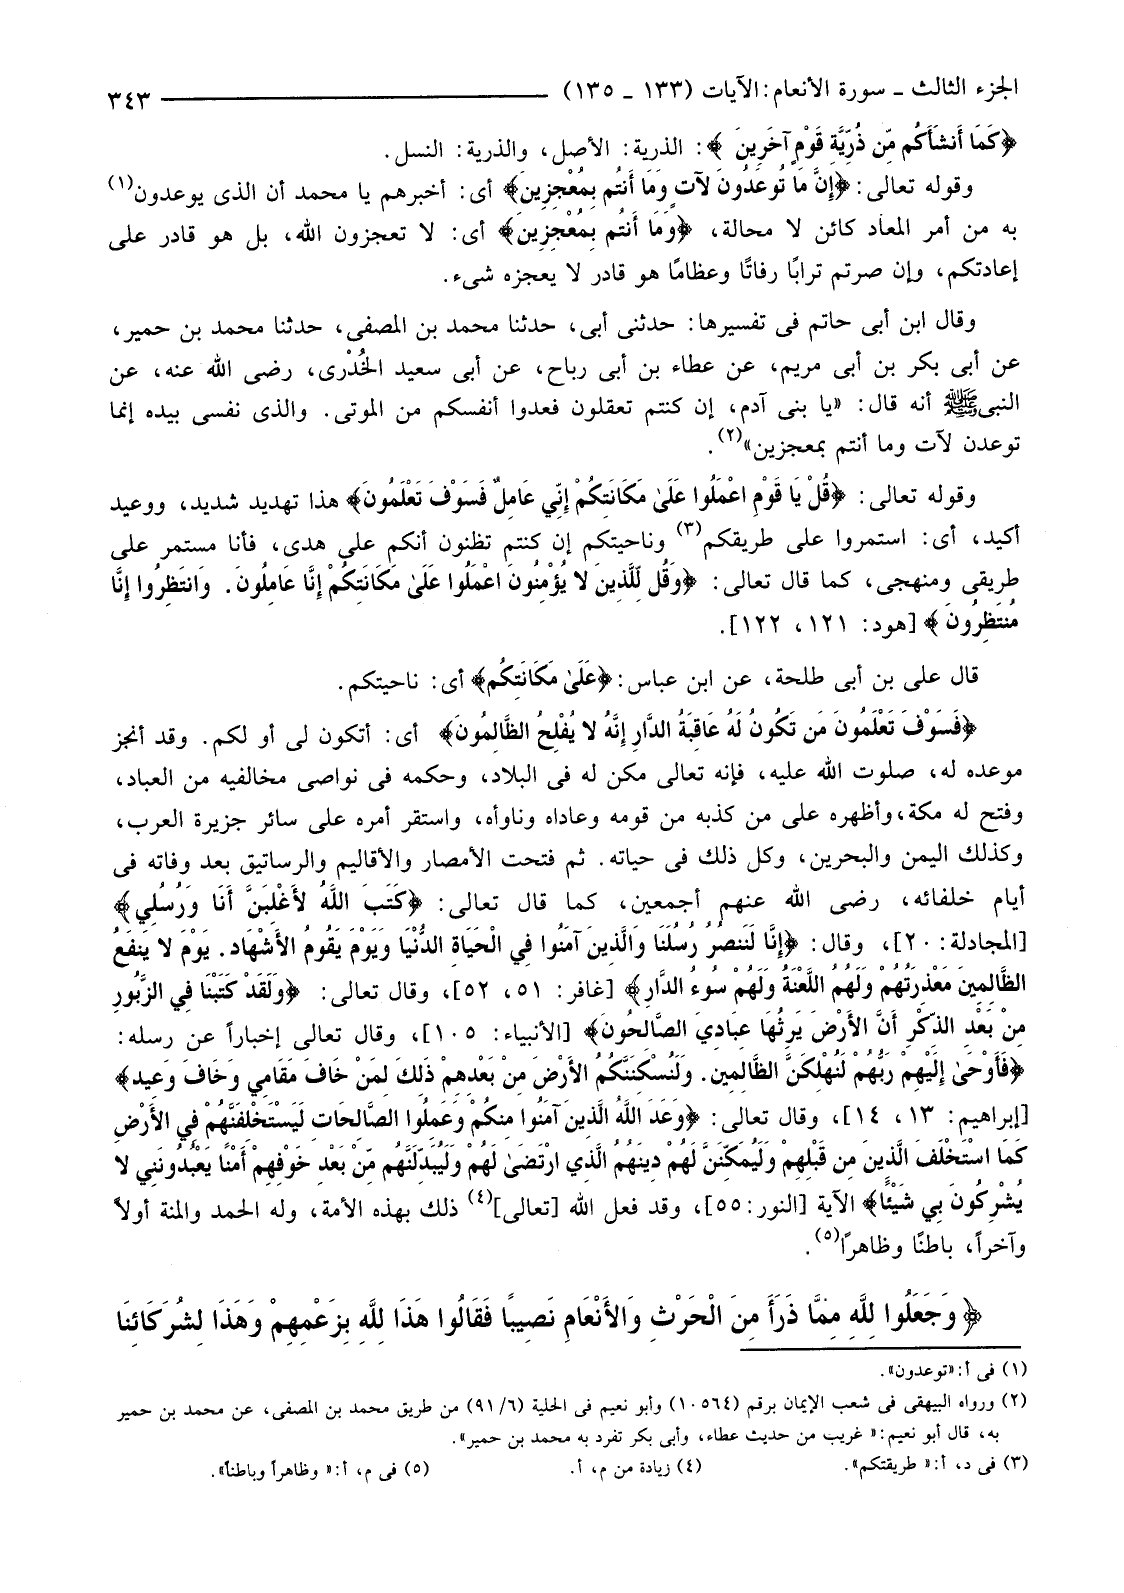 الجزء الثالث ـ سورة الأنعام: الآيات (١٣٣ ـ ١٣٥) ٣٤٣
﴿كَمَا أَنشَأَكُم مِّن ذُرِّيَّةِ قَوْمٍ آخَرِينَ﴾: الذرية: الأصل، والذرية: النسل.
وقوله تعالى: ﴿إِنَّ مَا تُوعَدُونَ لآتٍ وَمَا أَنتُم بِمُعْجِزِينَ﴾ أى: أخبرهم يا محمد أن الذى يوعدون(١)
به من أمر المعاد كائن لا محالة، ﴿وَمَا أَنتُم بِمُعْجِزِينَ﴾ أى: لا تعجزون الله، بل هو قادر على
إعادتكم، وإن صرتم ترابًا رفاتًا وعظامًا هو قادر لا يعجزه شىء.
وقال ابن أبى حاتم فى تفسيرها: حدثنى أبى، حدثنا محمد بن المصفى، حدثنا محمد بن حمير،
عن أبى بكر بن أبى مريم، عن عطاء بن أبى رباح، عن أبى سعيد الخُدْرى، رضى الله عنه، عن
النبى ﷺ أنه قال: «يا بنى آدم، إن كنتم تعقلون فعدوا أنفسكم من الموتى. والذى نفسى بيده إنما
توعدن لآت وما أنتم بمعجزين»(٢).
وقوله تعالى: ﴿قُلْ يَا قَوْمِ اعْمَلُوا عَلَىٰ مَكَانَتِكُمْ إِنِّي عَامِلٌ فَسَوْفَ تَعْلَمُونَ﴾ هذا تهديد شديد، ووعيد
أكيد، أى: استمروا على طريقكم(٣) وناحيتكم إن كنتم تظنون أنكم على هدى، فأنا مستمر على
طريقى ومنهجى، كما قال تعالى: ﴿وَقُل لِّلَّذِينَ لا يُؤْمِنُونَ اعْمَلُوا عَلَىٰ مَكَانَتِكُمْ إِنَّا عَامِلُونَ. وَانتَظِرُوا إِنَّا
مُنتَظِرُونَ﴾ [هود: ١٢١، ١٢٢].
قال على بن أبى طلحة، عن ابن عباس: ﴿عَلَىٰ مَكَانَتِكُم﴾ أى: ناحيتكم.
﴿فَسَوْفَ تَعْلَمُونَ مَن تَكُونُ لَهُ عَاقِبَةُ الدَّارِ إِنَّهُ لا يُفْلِحُ الظَّالِمُونَ﴾ أى: أتكون لى أو لكم. وقد أنجز
موعده له، صلوت الله عليه، فإنه تعالى مكن له فى البلاد، وحكمه فى نواصى مخالفيه من العباد،
وفتح له مكة، وأظهره على من كذبه من قومه وعاداه وناوأه، واستقر أمره على سائر جزيرة العرب،
وكذلك اليمن والبحرين، وكل ذلك فى حياته. ثم فتحت الأمصار والأقاليم والرساتيق بعد وفاته فى
أيام خلفائه، رضى الله عنهم أجمعين، كما قال تعالى: ﴿كَتَبَ اللَّهُ لأَغْلِبَنَّ أَنَا وَرُسُلِي﴾
[المجادلة: ٢٠]، وقال: ﴿إِنَّا لَنَنصُرُ رُسُلَنَا وَالَّذِينَ آمَنُوا فِي الْحَيَاةِ الدُّنْيَا وَيَوْمَ يَقُومُ الأَشْهَاد. يَوْمَ لا يَنفَعُ
الظَّالِمِينَ مَعْذِرَتُهُمْ وَلَهُمُ اللَّعْنَةُ وَلَهُمْ سُوءُ الدَّارِ﴾ [غافر: ٥١، ٥٢]، وقال تعالى: ﴿وَلَقَدْ كَتَبْنَا فِي الزَّبُورِ
مِنْ بَعْدِ الذِّكْرِ أَنَّ الأَرْضَ يَرِثُهَا عِبَادِيَ الصَّالِحُونَ﴾ [الأنبياء: ١٠٥]، وقال تعالى إخباراً عن رسله:
﴿فَأَوْحَىٰ إِلَيْهِمْ رَبُّهُمْ لَنُهْلِكَنَّ الظَّالِمِينَ. وَلَنُسْكِنَنَّكُمُ الأَرْضَ مِنْ بَعْدِهِمْ ذَلِكَ لِمَنْ خَافَ مَقَامِي وَخَافَ وَعِيدِ﴾
[إبراهيم: ١٣، ١٤]، وقال تعالى: ﴿وَعَدَ اللَّهُ الَّذِينَ آمَنُوا مِنكُمْ وَعَمِلُوا الصَّالِحَاتِ لَيَسْتَخْلِفَنَّهُمْ فِي الأَرْضِ
كَمَا اسْتَخْلَفَ الَّذِينَ مِن قَبْلِهِمْ وَلَيُمَكِّنَنَّ لَهُمْ دِينَهُمُ الَّذِي ارْتَضَىٰ لَهُمْ وَلَيُبَدِّلَنَّهُم مِّنْ بَعْدِ خَوْفِهِمْ أَمْنًا يَعْبُدُونَنِي لا
يُشْرِكُونَ بِي شَيْئًا﴾ الآية [النور: ٥٥]، وقد فعل الله [تعالى](٤) ذلك بهذه الأمة، وله الحمد والمنة أولاً
وآخراً، باطنًا وظاهرًا(٥).
﴿وَجَعَلُوا لِلَّهِ مِمَّا ذَرَأَ مِنَ الْحَرْثِ وَالأَنْعَامِ نَصِيبًا فَقَالُوا هَذَا لِلَّهِ بِزَعْمِهِمْ وَهَذَا لِشُرَكَائِنَا
(١) فى أ: «توعدون».
(٢) ورواه البيهقى فى شعب الإيمان برقم (١٠٥٦٤) وأبو نعيم فى الحلية (٩١/٦) من طريق محمد بن المصفى، عن محمد بن حمير
به، قال أبو نعيم: « غريب من حديث عطاء، وأبى بكر تفرد به محمد بن حمير».
(٣) فى د، أ: « طريقتكم». (٤) زيادة من م، أ. (٥) فى م، أ: « وظاهراً وباطناً».